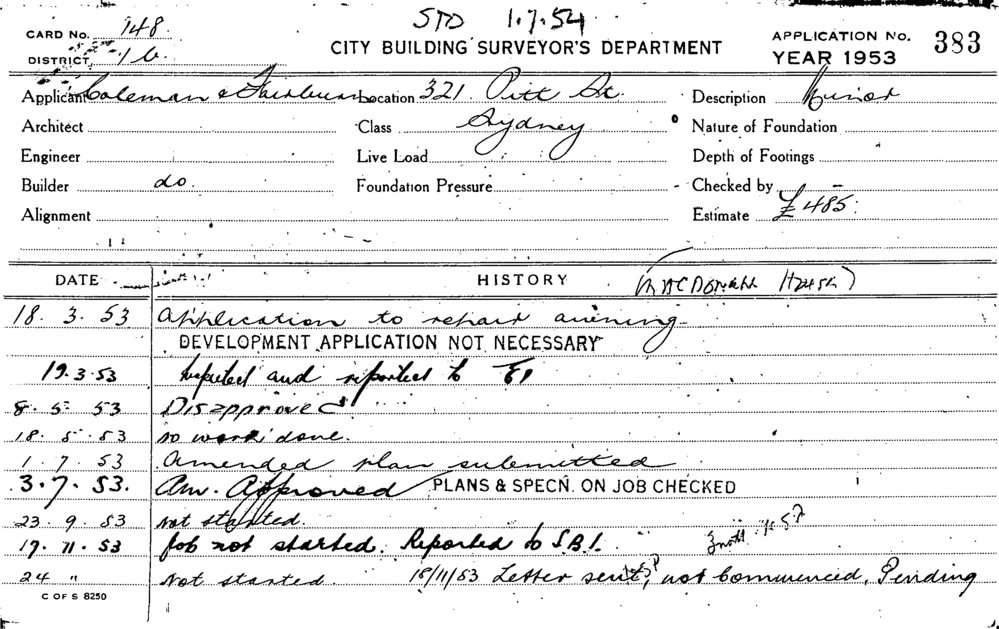 STD 1.7.54
CARD No. 148
CITY BUILDING SURVEYOR'S DEPARTMENT
APPLICATION No. 383
YEAR 1953
DISTRICT 1b.
Applicant Coleman & Fairburn Location 321 Pitt St. Description Minor
Architect Class Sydney Nature of Foundation
Engineer Live Load Depth of Footings
Builder do. Foundation Pressure Checked by
Alignment Estimate £485.
DATE HISTORY (MACDonald House)
18. 3. 53 Application to repair awning
DEVELOPMENT APPLICATION NOT NECESSARY
19.3.53 Inspected and reported to
8. 5. 53 Disapproved
18. 5. 53 no work done.
1. 7. 53 Amended plan submitted
3. 7. 53. Am. Approved PLANS & SPECN. ON JOB CHECKED
23. 9. 53 not started.
17. 11. 53 Job not started. Reported to S.B.I.
24 " Not started. 18/11/53 Letter sent, not Commenced, Pending
C OF S 8250